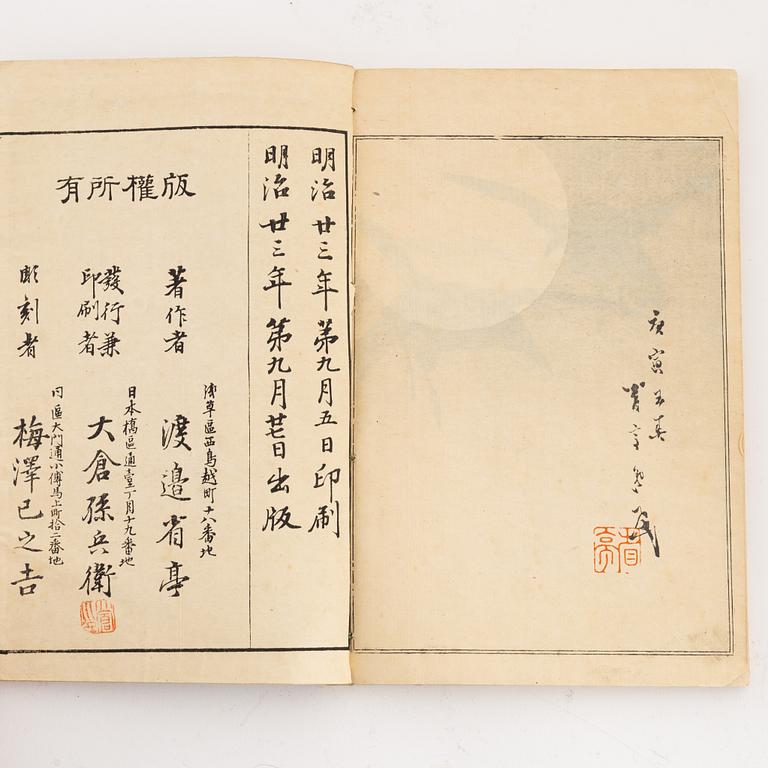 庚寅孟春
省亭
省亭
明治廿三年第九月五日印刷
明治廿三年第九月廿七日出版
版權所有
淺草區西鳥越町十八番地
著作者 渡邉省亭
日本橋區通壹丁目十九番地
發行兼
印刷者 大倉孫兵衛
同區大門通小傳馬上町拾二番地
彫刻者 梅澤巳之吉